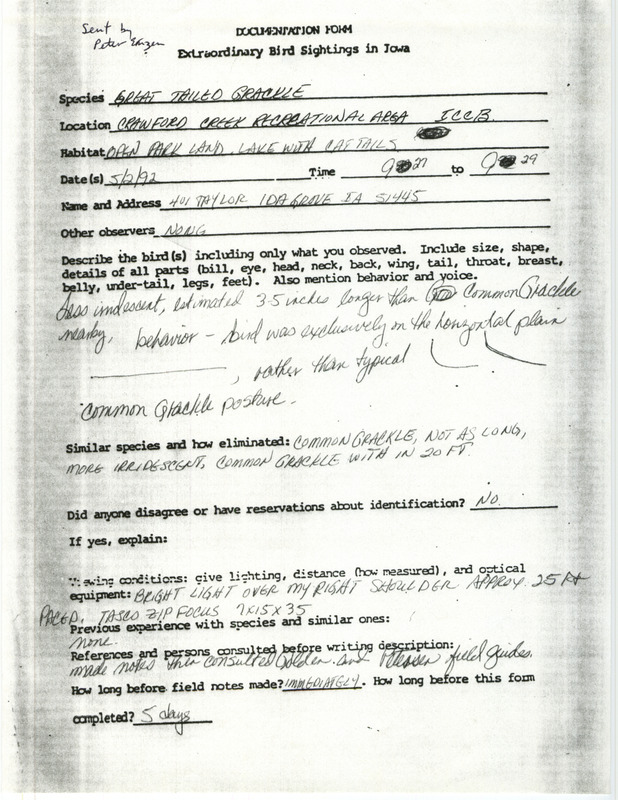 Sent by
Peter
DOCUMENTATION FORM
Extraordinary Bird Sightings in Iowa
Species GREAT TAILED GRACKLE
Location CRAWFORD CREEK RECREATIONAL AREA ICCB.
Habitat OPEN PARK LAND. LAKE WITH CATTAILS
Date(s) 5/2/92 Time 9 27 to 9 29
Name and Address 401 TAYLOR IDA GROVE IA 51445
Other observers NONE
Describe the bird(s) including only what you observed. Include size, shape,
details of all parts (bill, eye, head, neck, back, wing, tail, throat, breast,
belly, under-tail, legs, feet). Also mention behavior and voice.
Less irridescent, estimated 3-5 inches longer than Common Grackle
nearby. behavior - bird was exclusively in the horizontal plain
, rather than typical
Common Grackle posture.
Similar species and how eliminated: COMMON GRACKLE, NOT AS LONG,
MORE IRRIDESCENT, COMMON GRACKLE WITH IN 20 FT.
Did anyone disagree or have reservations about identification? NO.
If yes, explain:
Viewing conditions: give lighting, distance (how measured), and optical
equipment: BRIGHT LIGHT OVER MY RIGHT SHOULDER APPROX. 25 Ft
PACED. TASCO ZIP FOCUS 7X15X35
Previous experience with species and similar ones:
none.
References and persons consulted before writing description:
made notes then consulted Golden and field guides.
How long before field notes made? IMMEDIATELY. How long before this form
completed? 5 days